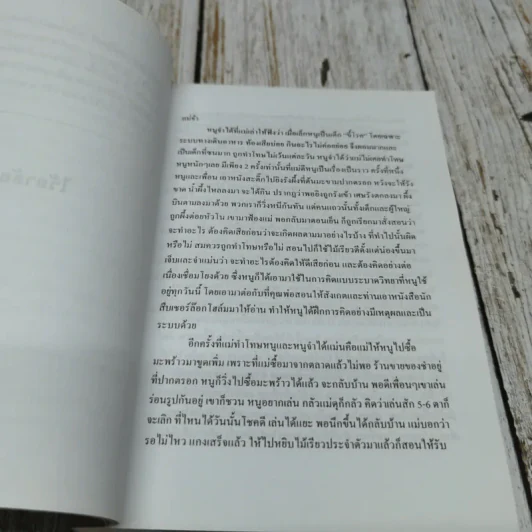 แม่จ๋า
หนูจำได้ที่แม่เล่าให้ฟังว่า เมื่อเล็กหนูเป็นเด็ก "ขี้โรค" โดยเฉพาะ
ระบบทางเดินอาหาร ท้องเสียบ่อย กินอะไรไม่ค่อยย่อย จึงผอมมากและ
เป็นเด็กที่ซนมาก ถูกทำโทษไม่เว้นแต่ละวัน หนูจำได้ว่าแม่ไม่เคยทำโทษ
หนูหนักๆเลย มีเพียง 2 ครั้งเท่านั้นที่แม่ตีหนูเป็นเรื่องเป็นราว ครั้งที่หนึ่ง
หนูและเพื่อน เอาหนังสะติ๊กไปยิงรังผึ้งที่ต้นมะขามปากตรอก หวังจะให้รัง
ขาด น้ำผึ้งไหลลงมา จะได้กิน ปรากฏว่าพอยิงถูกรังเข้า เศษรังตกลงมา ผึ้ง
บินตามลงมาด้วย พวกเราก็วิ่งหนีกันทัน แต่คนแถวนั้นทั้งเด็กและผู้ใหญ่
ถูกผึ้งต่อยหัวโน เขามาฟ้องแม่ พอกลับมาตอนเย็น ก็ถูกเรียกมาสั่งสอนว่า
จะทำอะไร ต้องคิดเสียก่อนว่าจะเกิดผลตามมาอย่างไรบ้าง ที่ทำไปนั้นผิด
หรือไม่ สมควรถูกทำโทษหรือไม่ สอนไปก็ใช้ไม้เรียวตีตั้งแต่น่องขึ้นมา
เจ็บและจำแม่นว่า จะทำอะไรต้องคิดให้ดีเสียก่อน และต้องคิดอย่างต่อ
เนื่องเชื่อมโยงด้วย ซึ่งหนูก็ได้เอามาใช้ในการคิดแบบระบาดวิทยาที่หนูใช้
อยู่ทุกวันนี้ โดยเอามาต่อกับที่คุณพ่อสอนให้สังเกตและท่านเอาหนังสือนัก
สืบเชอร์ล๊อกโฮล์มมาให้อ่าน ทำให้หนูได้ฝึกการคิดอย่างมีเหตุผลและเป็น
ระบบด้วย
อีกครั้งที่แม่ทำโทษหนูและหนูจำได้แม่นคือแม่ให้หนูไปซื้อ
มะพร้าวมาขูดเพิ่ม เพราะที่แม่ซื้อมาจากตลาดแล้วไม่พอ ร้านขายของชำอยู่
ที่ปากตรอก หนูก็วิ่งไปซื้อมะพร้าวได้แล้ว จะกลับบ้าน พอดีเพื่อนๆเขาเล่น
ร่อนรูปกันอยู่ เขาก็ชวน หนูอยากเล่น กลัวแม่ดุก็กลัว คิดว่าเล่นสัก 5-6 ตาก็
จะเลิก ที่ไหนได้วันนั้นโชคดี เล่นได้แยะ พอนึกขึ้นได้กลับบ้าน แม่บอกว่า
รอไม่ไหว แกงเสร็จแล้ว ให้ไปหยิบไม้เรียวประจำตัวมาแล้วก็สอนให้รับ